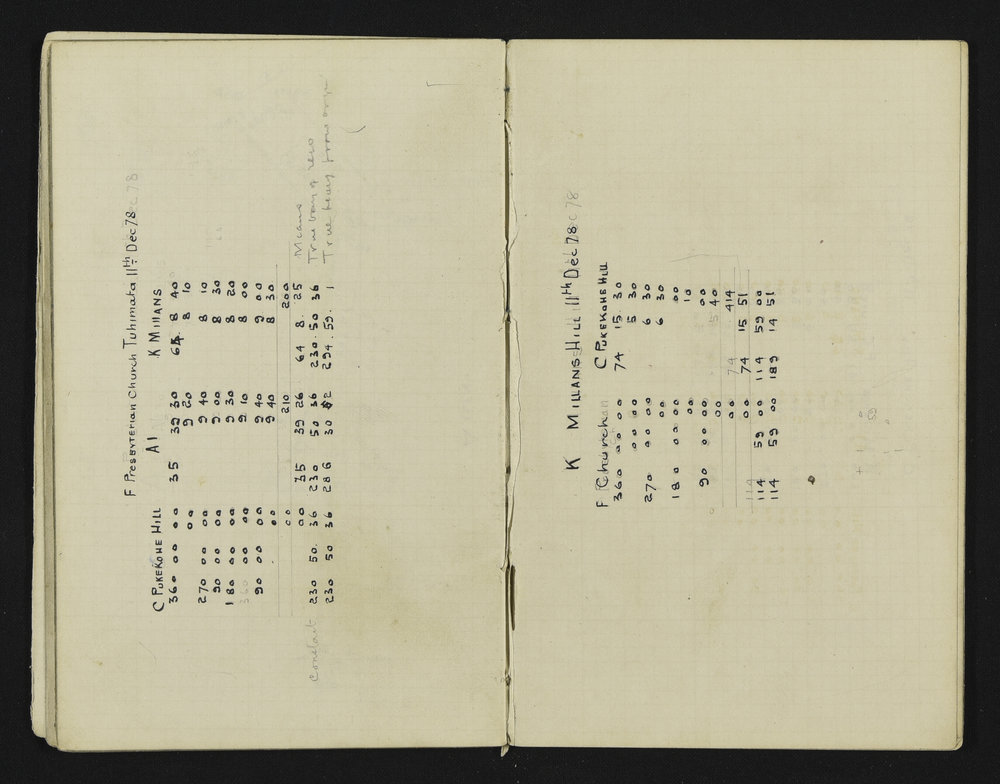 F Presbyterian Church Tuhimata 11th Dec 78
C PUKEKOHE HILL A1 K MILLANS
360 00 00 35 39 30 64 8 40
00 9 20 8 10
270 00 00 9 40 8 10
90 00 00 9 00 8 30
180 00 00 9 30 8 20
360 00 00 9 10 8 00
90 00 00 9 40 9 00
00 9 40 8 30
00 210 200
00 35 39 26 64 8. 25 Means
Constant 230 50. 36 230 50 36 230. 50 36 True bearg of zero
230 50 36 286 30 2 294. 59. 1 True bearg from
K MILLANS HILL 11th Dec 78
F Church C PUKEKOHE HILL
360 00 00 00 74 15 30
00 00 5 30
270 00 00 00 6 30
00 6 30
180 00 00 00 00
00 10
90 00 00 00 00
00 5 40
00 74 414
114 00 74 15 51
114 59 00 114 59 00
114 59 00 189 14 51